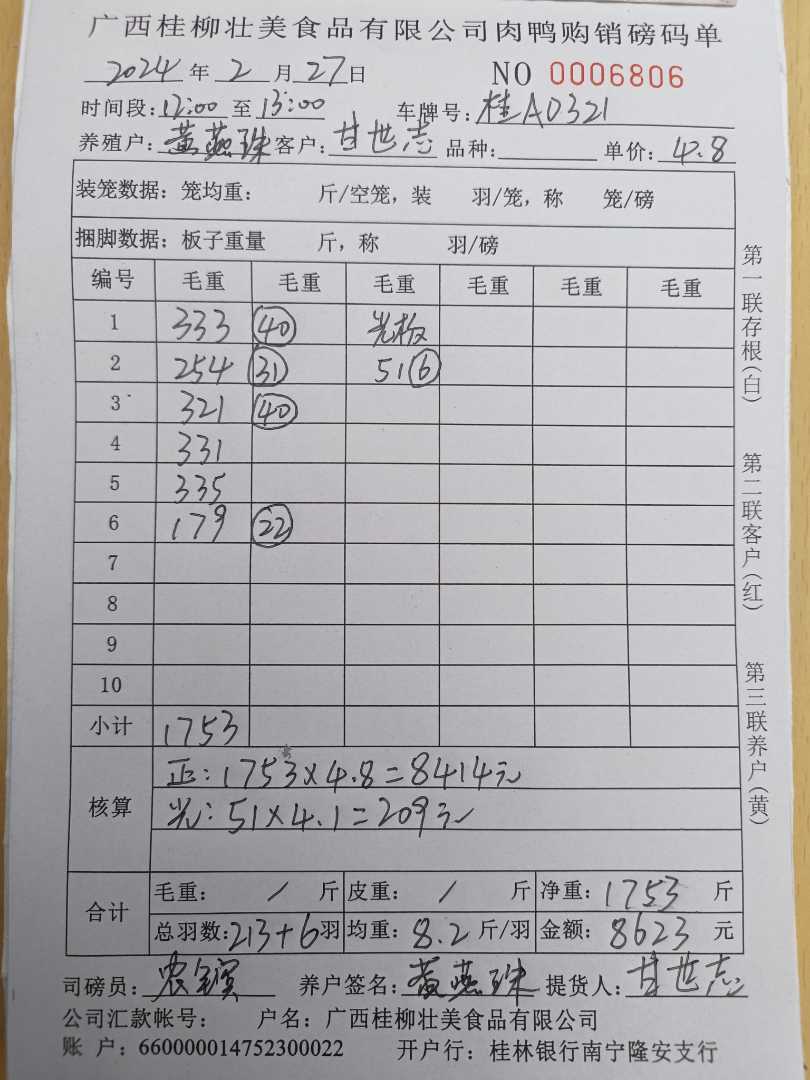 广西桂柳壮美食品有限公司肉鸭购销磅码单
2024年2月27日 NO 0006806
时间段:12:00至13:00 车牌号:桂A0321
养殖户:黄燕珠 客户:甘世志 品种: 单价:4.8
装笼数据:笼均重: 斤/空笼,装 羽/笼,称 笼/磅
捆脚数据:板子重量 斤,称 羽/磅
编号 毛重 毛重 毛重 毛重 毛重 毛重
1 333 40 光板
2 254 31 51 6
3 321 40
4 331
5 335
6 179 22
7
8
9
10
小计 1753
核算
正:1753×4.8=8414元
光:51×4.1=209元
合计
毛重: / 斤 皮重: / 斤 净重:1753 斤
总羽数:213+6羽 均重:8.2斤/羽 金额:8623 元
司磅员: 养户签名:黄燕珠 提货人:甘世志
公司汇款帐号: 户名:广西桂柳壮美食品有限公司
账 户:660000014752300022 开户行:桂林银行南宁隆安支行
第一联存根(白)
第二联客户(红)
第三联养户(黄)